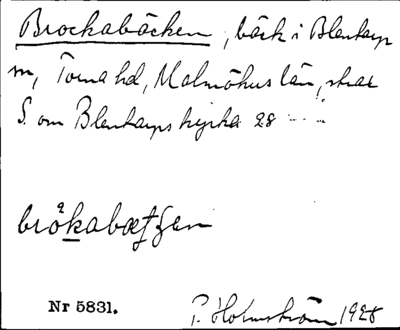 Brockabäcken, bäck i Blentarps
sn, Torna hd, Malmöhus län, strax
S. om Blentarps kyrka 28
bråkabæʈʂen
Nr 5831.
P. Holmström 1928